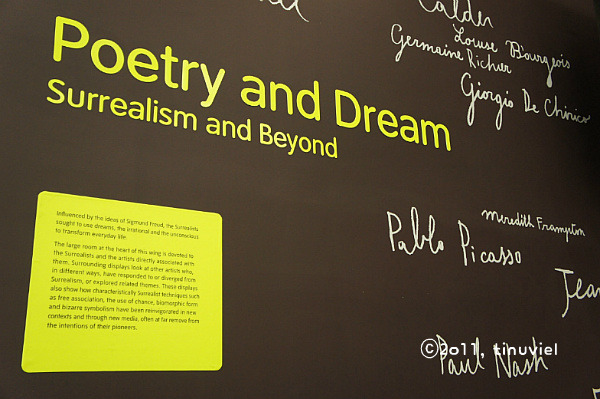 Calder
Louise Bourgeois
Germaine Richier
Giorgio De Chirico
Poetry and Dream
Surrealism and Beyond
Influenced by the ideas of Sigmund Freud, the Surrealists
sought to use dreams, the irrational and the unconscious
to transform everyday life.
The large room at the heart of this wing is devoted to
the Surrealists and the artists directly associated with
them. Surrounding displays look at other artists who,
in different ways, have responded to or diverged from
Surrealism, or explored related themes. These displays
also show how characteristically Surrealist techniques such
as free association, the use of chance, biomorphic form
and bizarre symbolism have been reinvigorated in new
contexts and through new media, often at far remove from
the intentions of their pioneers.
Meredith Frampton
Pablo Picasso
Jean
©2011, tinuviel
Paul Nash